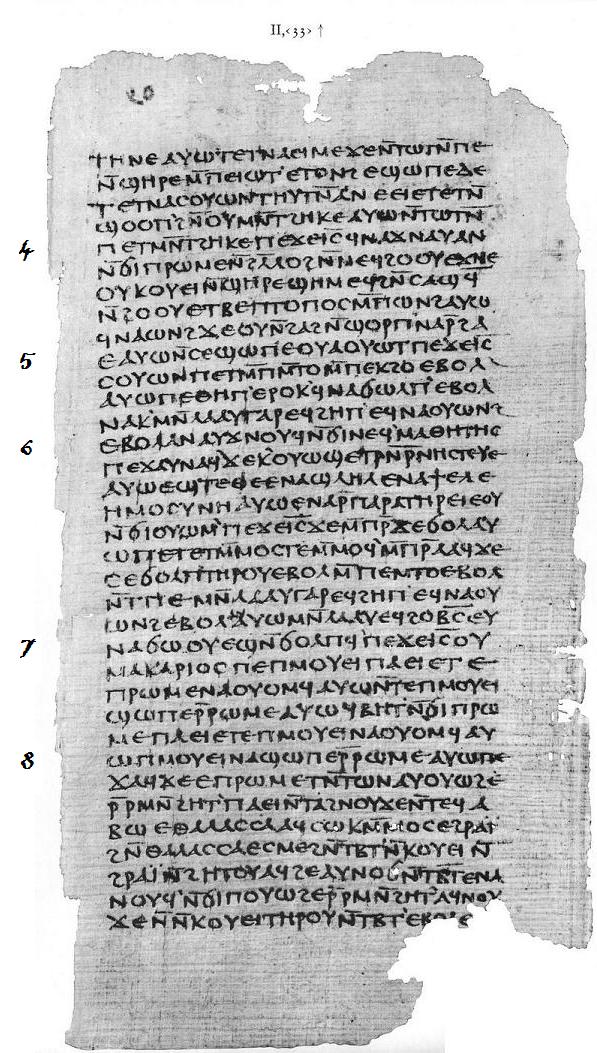 II,‹33› ↑
ⲧⲏⲛⲉ ⲁⲩⲱ ⲧⲉⲧⲛⲁⲉⲓⲙⲉ ϫⲉ ⲛ̄ⲧⲱⲧⲛ̄ ⲡⲉ
ⲛ̄ϣⲏⲣⲉ ⲙ̄ⲡⲉⲓⲱⲧ` ⲉⲧⲟⲛϩ ⲉϣⲱⲡⲉ ⲇⲉ
ⲧⲉⲧⲛⲁⲥⲟⲩⲱⲛ ⲧⲏⲩⲧⲛ̄ ⲁⲛ ⲉⲉⲓⲉ ⲧⲉⲧⲛ̄
ϣⲟⲟⲡ` ϩⲛ̄ ⲟⲩⲙⲛ̄ⲧϩⲏⲕⲉ ⲁⲩⲱ ⲛ̄ⲧⲱⲧⲛ̄
4 ⲡⲉ ⲧⲙⲛ̄ⲧϩⲏⲕⲉ ⲡⲉϫⲉ ⲓ̄ⲥ̄ ϥⲛⲁϫⲛⲁⲩ ⲁⲛ
ⲛ̄ϭⲓ ⲡⲣⲱⲙⲉ ⲛ̄ϩⲗ̄ⲗⲟ ϩⲛ̄ ⲛⲉϥϩⲟⲟⲩ ⲉϫⲛⲉ
ⲟⲩⲕⲟⲩⲉⲓ ⲛ̄ϣⲏⲣⲉ ϣⲏⲙ ⲉϥϩⲛ̄ ⲥⲁϣϥ̄
ⲛ̄ϩⲟⲟⲩ ⲉⲧⲃⲉ ⲡⲧⲟⲡⲟⲥ ⲙ̄ⲡⲱⲛϩ ⲁⲩⲱ
ϥⲛⲁⲱⲛϩ ϫⲉ ⲟⲩⲛ̄ ϩⲁϩ ⲛ̄ϣⲟⲣⲡ` ⲛⲁⲣ̄ ϩⲁ
5 ⲉ ⲁⲩⲱ ⲛ̄ⲥⲉϣⲱⲡⲉ ⲟⲩⲁ ⲟⲩⲱⲧ ⲡⲉϫⲉ ⲓ̄ⲥ̄
ⲥⲟⲩⲱⲛ ⲡⲉⲧⲙ̄ⲡⲙ̄ⲧⲟ ⲙ̄ⲡⲉⲕϩⲟ ⲉⲃⲟⲗ`
ⲁⲩⲱ ⲡⲉⲑⲏⲡ` ⲉⲣⲟⲕ` ϥⲛⲁϭⲱⲗⲡ` ⲉⲃⲟⲗ
ⲛⲁⲕ` ⲙⲛ̄ ⲗⲁⲁⲩ ⲅⲁⲣ ⲉϥϩⲏⲡ` ⲉϥⲛⲁⲟⲩⲱⲛϩ
6 ⲉⲃⲟⲗ ⲁⲛ ⲁⲩϫⲛⲟⲩϥ ⲛ̄ϭⲓ ⲛⲉϥ`ⲙⲁⲑⲏⲧⲏⲥ
ⲡⲉϫⲁⲩ ⲛⲁϥ` ϫⲉ ⲕⲟⲩⲱϣ ⲉⲧⲣⲛ̄ⲣ̄ⲛⲏⲥⲧⲉⲩⲉ
ⲁⲩⲱ ⲉϣ ⲧⲉ ⲑⲉ ⲉⲛⲁϣⲗⲏⲗ ⲉⲛⲁϯ ⲉⲗⲉ
ⲏⲙⲟⲥⲩⲛⲏ ⲁⲩⲱ ⲉⲛⲁⲣ̄ⲡⲁⲣⲁⲧⲏⲣⲉⲓ ⲉⲟⲩ
ⲛ̄ϭⲓⲟⲩⲱⲙ` ⲡⲉϫⲉ ⲓ̄ⲥ̄ ϫⲉ ⲙ̄ⲡⲣ̄ϫⲉ ϭⲟⲗ ⲁⲩ
ⲱ ⲡⲉⲧⲉⲧⲙ̄ⲙⲟⲥⲧⲉ ⲙ̄ⲙⲟϥ` ⲙ̄ⲡⲣ̄ⲁⲁϥ ϫⲉ
ⲥⲉϭⲟⲗⲡ` ⲧⲏⲣⲟⲩ ⲉⲃⲟⲗ ⲙ̄ⲡⲉⲙⲧⲟ ⲉⲃⲟⲗ
ⲛ̄ⲧⲡⲉ ⲙⲛ̄ ⲗⲁⲁⲩ ⲅⲁⲣ ⲉϥϩⲏⲡ` ⲉϥⲛⲁⲟⲩ
ⲱⲛϩ ⲉⲃⲟⲗ ⲁⲛ ⲁⲩⲱ ⲙⲛ̄ ⲗⲁⲁⲩ ⲉϥϩⲟⲃ̄ⲥ̄ ⲉⲩ
7 ⲛⲁϭⲱ ⲟⲩⲉϣⲛ̄ ϭⲟⲗⲡϥ` ⲡⲉϫⲉ ⲓ̄ⲥ̄ ⲟⲩ
ⲙⲁⲕⲁⲣⲓⲟⲥ ⲡⲉ ⲡⲙⲟⲩⲉⲓ ⲡⲁⲉⲓ ⲉⲧⲉ
ⲡⲣⲱⲙⲉ ⲛⲁⲟⲩⲟⲙϥ ⲁⲩⲱ ⲛ̄ⲧⲉ ⲡⲙⲟⲩⲉⲓ
ϣⲱⲡⲉ ⲣ̄ⲣⲱⲙⲉ ⲁⲩⲱ ϥⲃⲏⲧ` ⲛ̄ϭⲓ ⲡⲣⲱ
ⲙⲉ ⲡⲁⲉⲓ ⲉⲧⲉ ⲡⲙⲟⲩⲉⲓ ⲛⲁⲟⲩⲟⲙϥ ⲁⲩ
8 ⲱ ⲡⲙⲟⲩⲉⲓ ⲛⲁϣⲱⲡⲉ ⲣ̄ⲣⲱⲙⲉ ⲁⲩⲱ ⲡⲉ
ϫⲁϥ ϫⲉ ⲉⲡⲣⲱⲙⲉ ⲧⲛ̄ⲧⲱⲛ ⲁⲩⲟⲩⲱϩⲉ
ⲣ̄ⲣⲙⲛ̄ϩⲏⲧ` ⲡⲁⲉⲓ ⲛ̄ⲧⲁϩⲛⲟⲩϫⲉ ⲛ̄ⲧⲉϥⲁ
ⲃⲱ ⲉⲑⲁⲗⲁⲥⲥⲁ ⲁϥⲥⲱⲕ ⲙ̄ⲙⲟⲥ ⲉϩⲣⲁⲓ̈
ϩⲛ̄ ⲑⲁⲗⲁⲥⲥⲁ ⲉⲥⲙⲉϩ ⲛ̄ⲧⲃⲧ` ⲛ̄ⲕⲟⲩⲉⲓ ⲛ̄
ϩⲣⲁⲓ̈ ⲛ̄ϩⲏⲧⲟⲩ ⲁϥϩⲉ ⲁⲩⲛⲟϭ ⲛ̄ⲧⲃⲧ ⲉⲛⲁ
ⲛⲟⲩϥ` ⲛ̄ϭⲓ ⲡⲟⲩⲱϩⲉ ⲣ̄ⲣⲙⲛ̄ϩⲏⲧ` ⲁϥⲛⲟⲩ
ϫⲉ ⲛ̄ⲛ̄ⲕⲟⲩⲉⲓ ⲧⲏⲣⲟⲩ ⲛ̄ⲧⲃⲧ`